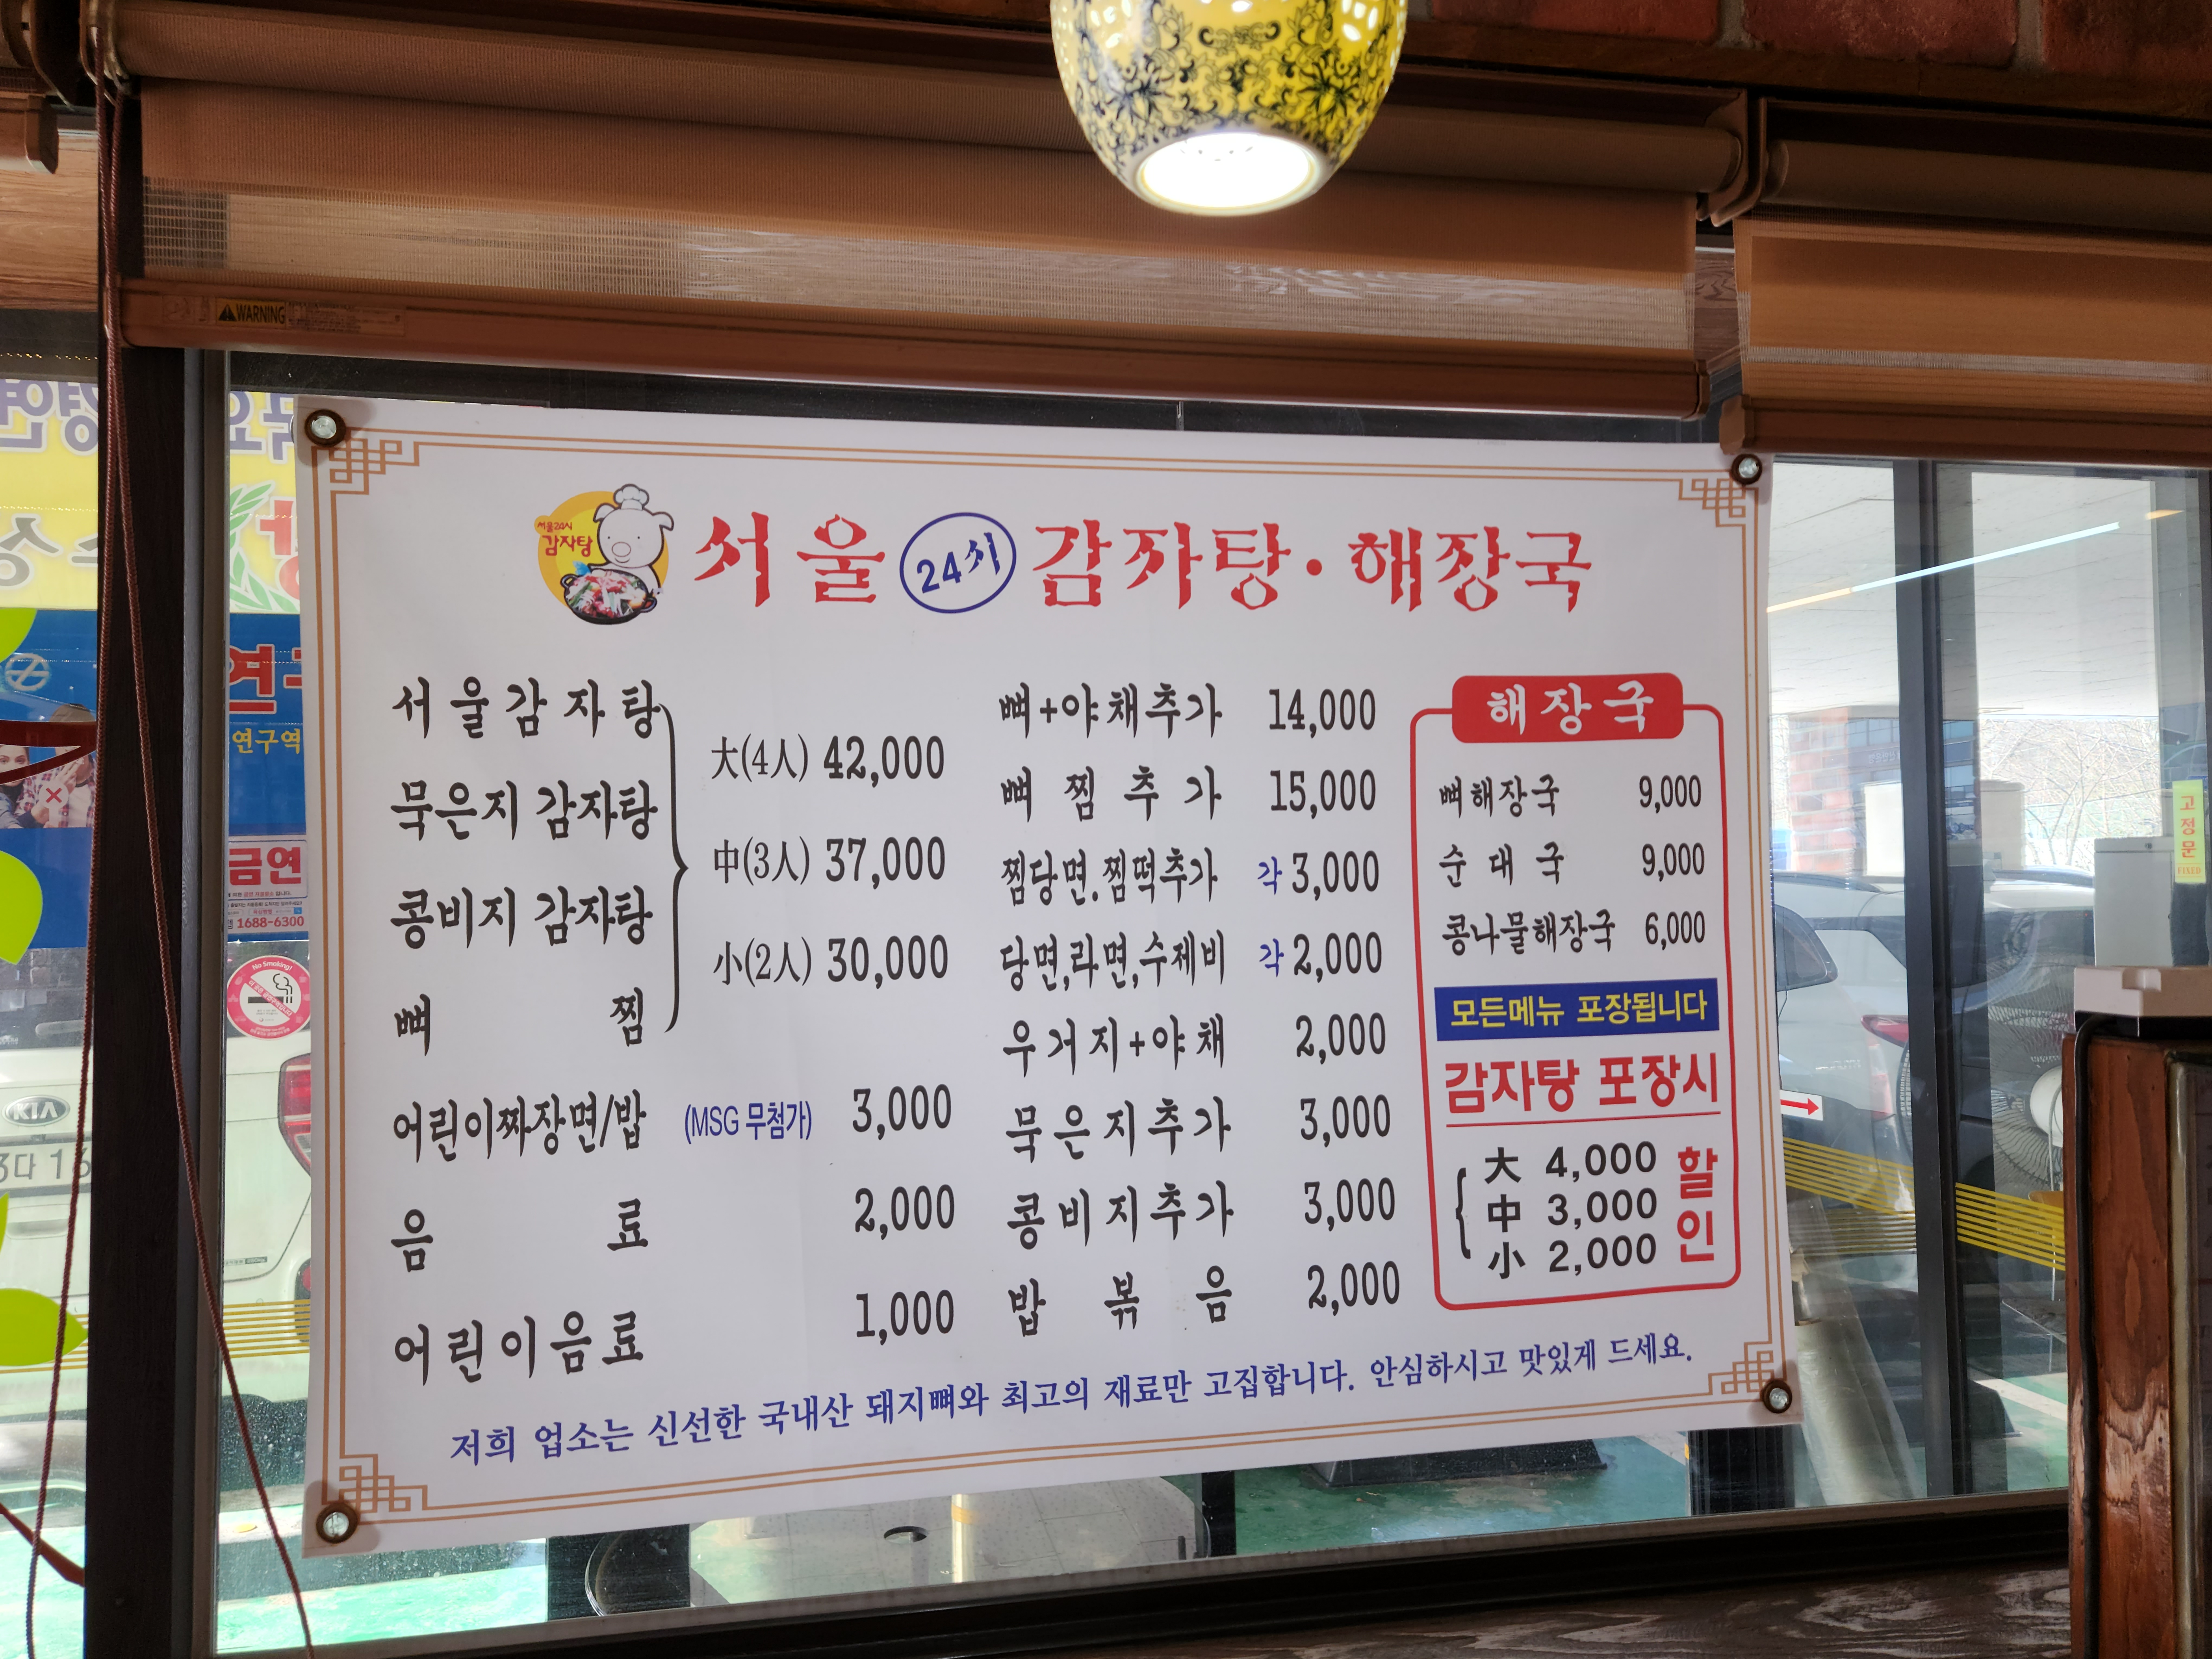 WARNING
서울24시
감자탕
서울 24시 감자탕·해장국
서울감자탕
묵은지 감자탕
콩비지 감자탕
뼈찜
大(4人) 42,000
中(3人) 37,000
小(2人) 30,000
어린이짜장면/밥 (MSG 무첨가) 3,000
음료 2,000
어린이음료 1,000
뼈+야채추가 14,000
뼈찜추가 15,000
찜당면.찜떡추가 각 3,000
당면,라면,수제비 각 2,000
우거지+야채 2,000
묵은지추가 3,000
콩비지추가 3,000
밥볶음 2,000
해장국
뼈해장국 9,000
순대국 9,000
콩나물해장국 6,000
모든메뉴 포장됩니다
감자탕 포장시
大 4,000
中 3,000
小 2,000
할인
저희 업소는 신선한 국내산 돼지뼈와 최고의 재료만 고집합니다. 안심하시고 맛있게 드세요.
연구역
금연
1688-6300
No Smoking!
KIA
고정문
FIXED